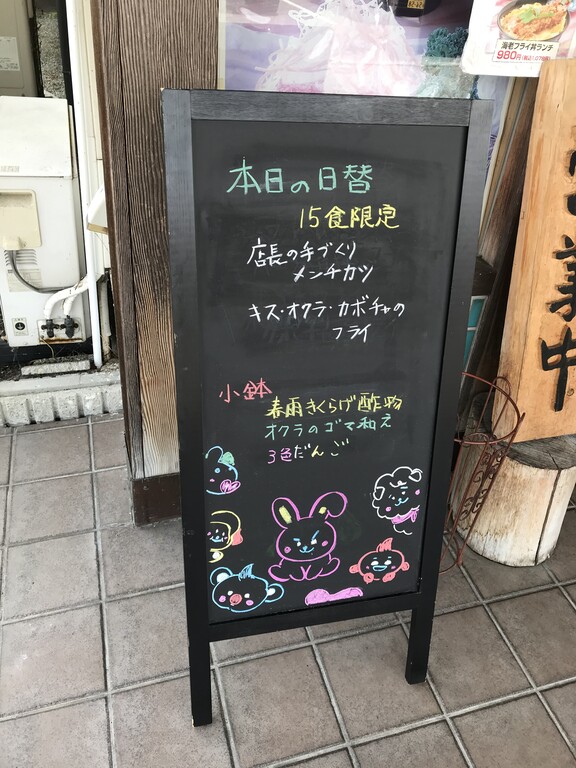 海老フライ丼ランチ
980円
本日の日替
15食限定
店長の手づくり
メンチカツ
キス・オクラ・カボチャの
フライ
小鉢
春雨きくらげ酢物
オクラのゴマ和え
3色だんご